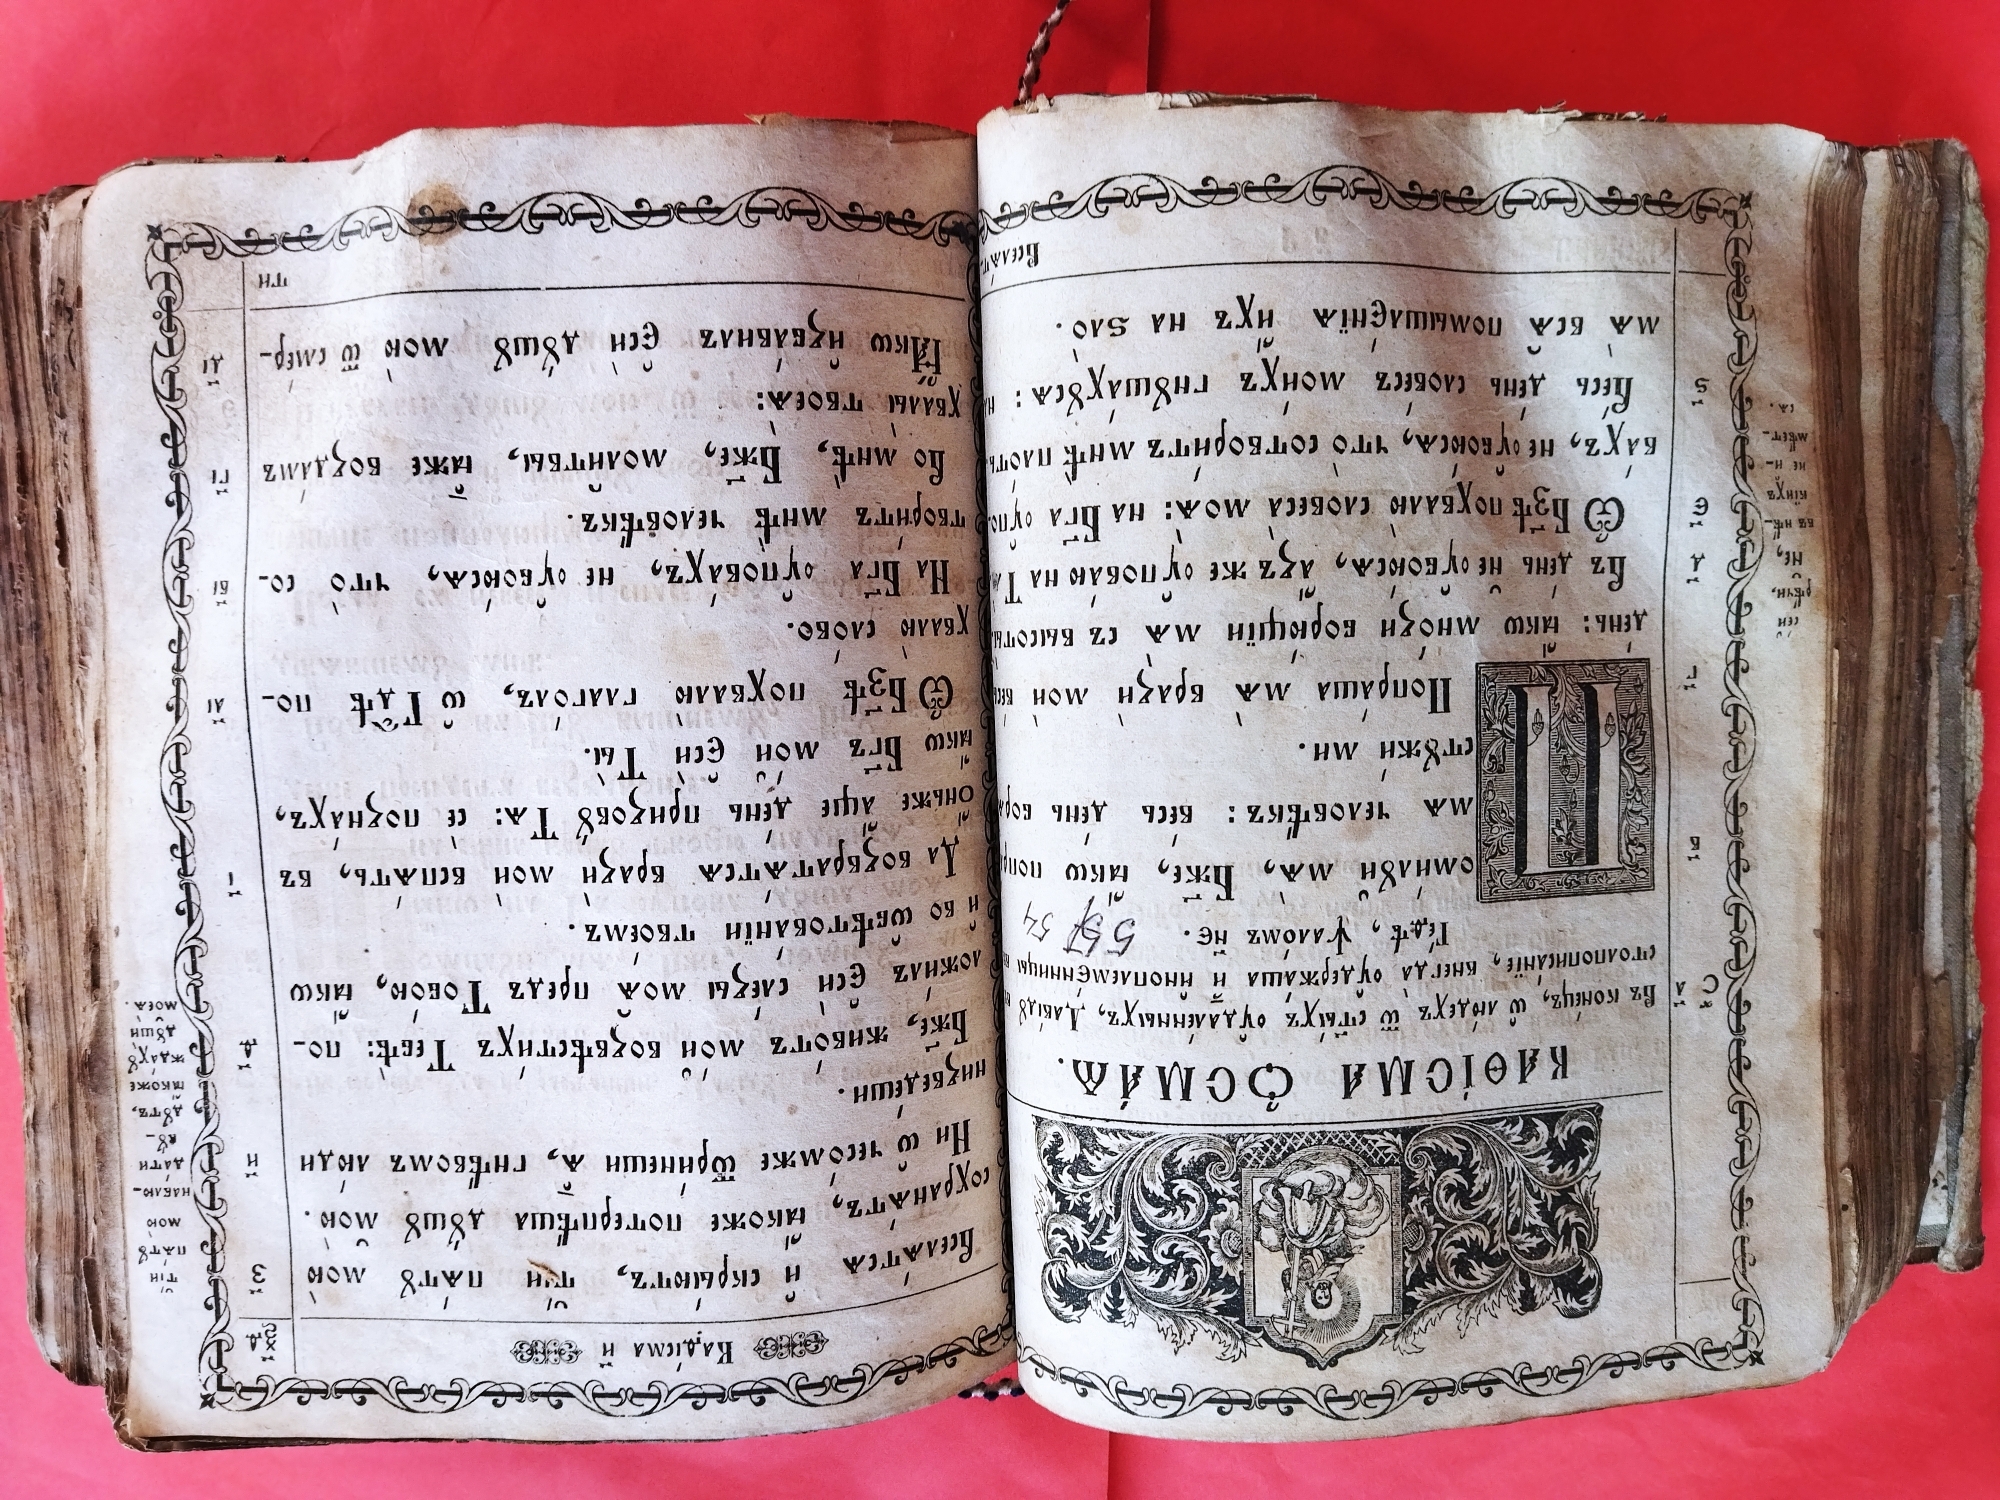 КАѲІ́СМА ѺСМА́Ѧ.
Въ коне́цъ, ѡ҆ лю́дехъ ѿ ст҃ы́хъ ᲂу҆дале́нныхъ, Даві́дꙋ въ
столпописа́нїе, внегда̀ ᲂу҆держа́ша и҆̀ и҆ноплеме́нницы въ
Ге́ѳѣ, ѱало́мъ н҃є. 55 54
Поми́лꙋй мѧ̀, Бж҃е, ꙗ҆́кѡ попра̀
мѧ̀ человѣ́къ: ве́сь де́нь борѧ̀
стꙋжи́ ми.
Попра́ша мѧ̀ вразѝ моѝ ве́сь
де́нь: ꙗ҆́кѡ мно́зи борю́щїи мѧ̀ съ высоты̀.
Въ де́нь не ᲂу҆бою́сѧ, а҆́зъ же ᲂу҆пова́ю на Тѧ̀.
Ѽ Бз҃ѣ похвалю̀ словеса̀ моѧ̑: на Бг҃а ᲂу҆по-
ва́хъ, не ᲂу҆бою́сѧ, что̀ сотвори́тъ мнѣ̀ пло́ть.
Ве́сь де́нь слове́съ мои́хъ гнꙋша́хꙋсѧ: на
мѧ̀ всѧ̑ помышлє́нїѧ и҆́хъ на ѕло̀.
Вселѧ́т-
в҃і
г҃і
д҃
є҃
ѕ҃
се́й
рѣ́чи,
не,
въ нѣ́-
кїихъ
не и-
мѣ́ет-
сѧ.
Каѳі́сма и҃
Вселѧ́тсѧ и҆ скры́ютъ, ті́и пѧ́тꙋ мою̀
сохранѧ́тъ, ꙗ҆́коже потерпѣ́ша дꙋ́шꙋ мою̀.
Ни ѡ҆ чесо́мже ѿри́неши ѧ҆̀, гнѣ́вомъ лю́ди
низведе́ши.
Бж҃е, живо́тъ мо́й возвѣсти́хъ Тебѣ̀: по-
ложи́лъ є҆сѝ сле́зы моѧ̑ пред̾ Тобо́ю, ꙗ҆́кѡ
и҆ во ѡ҆бѣтова́нїи твое́мъ.
Да возвратѧ́тсѧ вразѝ моѝ вспѧ́ть, въ
о́ньже а҆́ще де́нь призовꙋ̀ Тѧ̀: сѐ позна́хъ,
ꙗ҆́кѡ Бг҃ъ мо́й є҆сѝ Ты̀.
Ѽ Бз҃ѣ похвалю̀ глаго́лъ, ѡ҆ Гдⷭ҇ѣ по-
хвалю̀ сло́во.
На Бг҃а ᲂу҆пова́хъ, не ᲂу҆бою́сѧ, что̀ со-
твори́тъ мнѣ̀ человѣ́къ.
Во мнѣ̀, Бж҃е, моли́твы, ꙗ҆̀же возда́мъ
хвалы̀ твоеѧ̀:
Ꙗ҆́кѡ и҆зба́вилъ є҆сѝ дꙋ́шꙋ мою̀ ѿ сме́р-
ти
з҃
и҃
ѳ҃
і҃
а҃і
в҃і
г҃і
д҃і
ті́и
пѧ́тꙋ
мою̀
наблю-
да́ти
бꙋ́-
дꙋтъ,
ꙗ҆́коже
жда́хꙋ
дꙋшѝ
моеѧ̀.